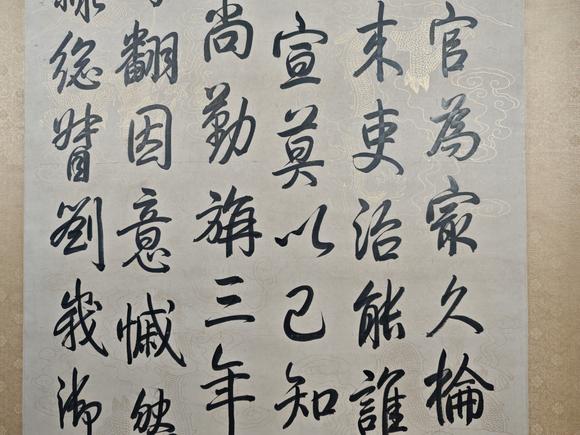 官為家久掄
来吏治能誰
宣莫以已知
尚勤旃三年
翻因意慽然
緫督劉峩御